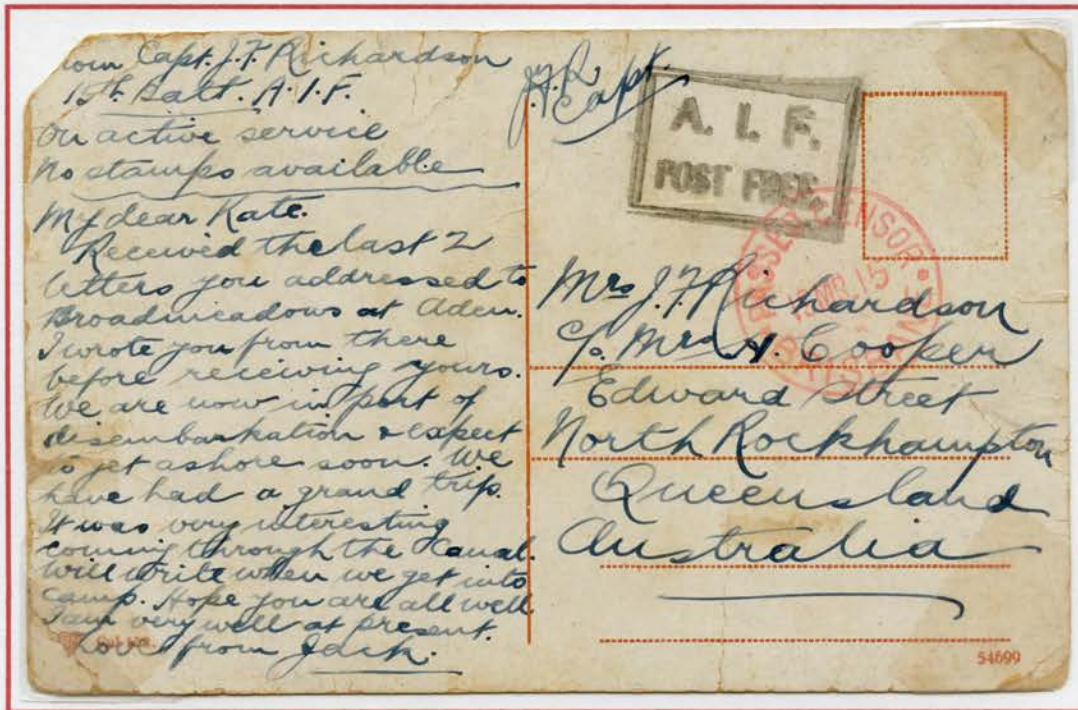 from Capt. J. F. Richardson
15th Batt. A.I.F.
On active service
No stamps available
My dear Kate.
Received the last 2
letters you addressed to
Broadmeadows at Aden.
I wrote you from there
before receiving yours.
We are now in port of
disembarkation & expect
to get ashore soon. We
have had a grand trip.
It was very interesting
coming through the Canal.
Will write when we get into
camp. Hope you are all well
I am very well at present.
Love from Jack.
J.F.R.
Capt.
A. I. F.
POST FREE.
PASSED CENSOR
15
BRISBANE
Mrs J. F. Richardson
c/o Mrs A. Cooper
Edward Street
North Rockhampton
Queensland
Australia
54699